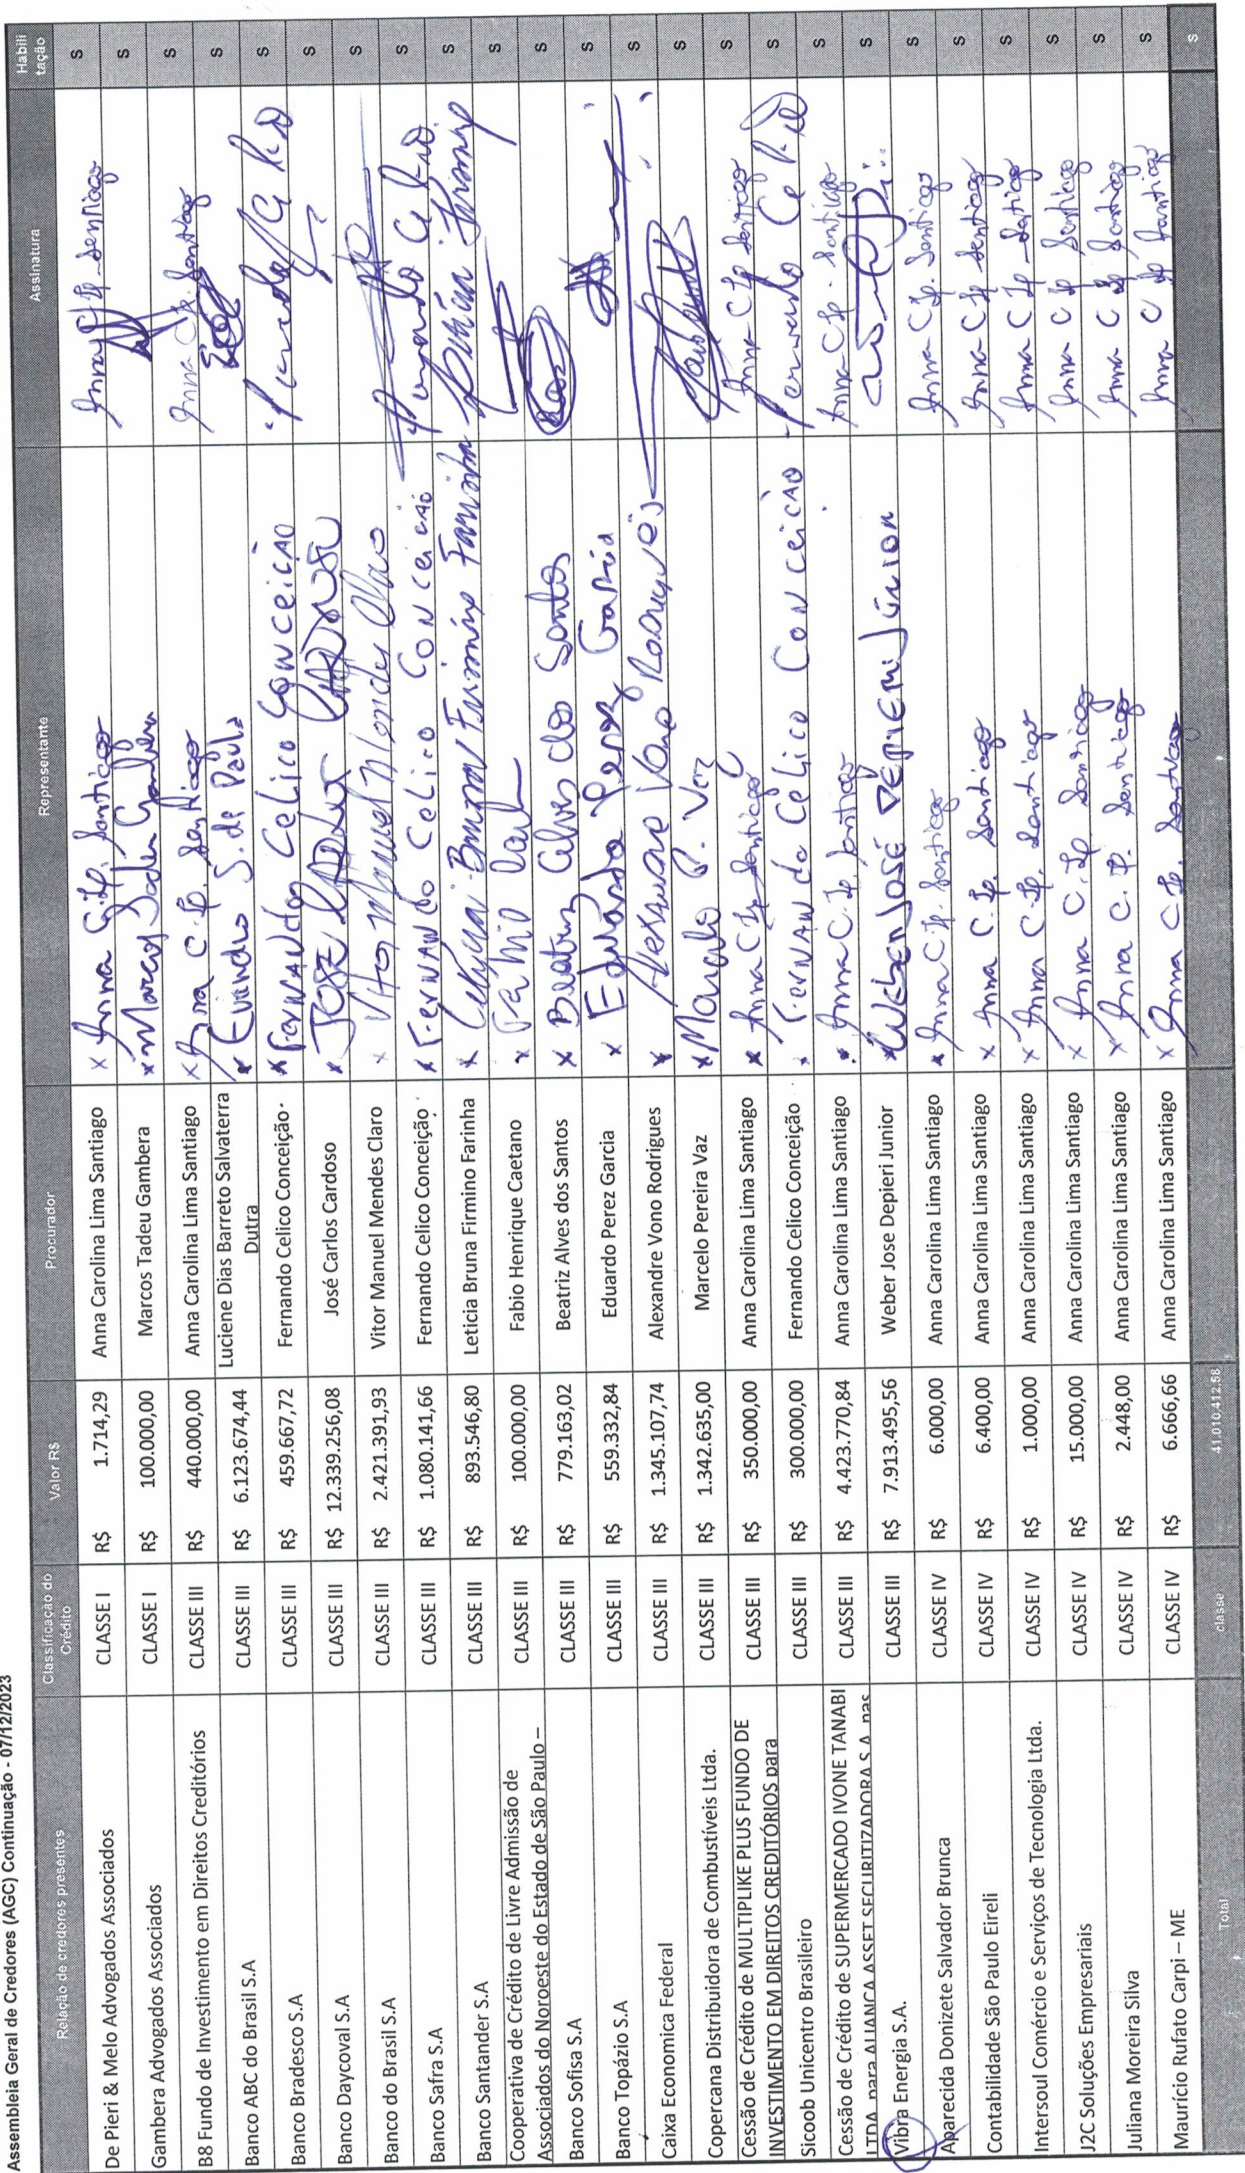 Assembleia Geral de Credores (AGC) Continuação - 07/12/2023
Relação de credores presentes Classificação do Crédito Valor R$ Procurador Representante Assinatura Habili tação
De Pieri & Melo Advogados Associados CLASSE I R$ 1.714,29 Anna Carolina Lima Santiago x Anna C. Lp. Santiago Anna C Lp Santiago S
Gambera Advogados Associados CLASSE I R$ 100.000,00 Marcos Tadeu Gambera x Marcos Tadeu Gambera S
B8 Fundo de Investimento em Direitos Creditórios CLASSE III R$ 440.000,00 Anna Carolina Lima Santiago x Anna C. Lp. Santiago Anna C Lp. Santiago S
Banco ABC do Brasil S.A CLASSE III R$ 6.123.674,44 Luciene Dias Barreto Salvaterra Dutra x Evandro S. de Paula S
Banco Bradesco S.A CLASSE III R$ 459.667,72 Fernando Celico Conceição. x Fernando Celico Conceição S
Banco Daycoval S.A CLASSE III R$ 12.339.256,08 José Carlos Cardoso x José Carlos Cardoso S
Banco do Brasil S.A CLASSE III R$ 2.421.391,93 Vitor Manuel Mendes Claro x Vitor Manuel Mendes Claro S
Banco Safra S.A CLASSE III R$ 1.080.141,66 Fernando Celico Conceição x Fernando Celico Conceição S
Banco Santander S.A CLASSE III R$ 893.546,80 Leticia Bruna Firmino Farinha x Letícia Bruna Firmino Farinha S
Cooperativa de Crédito de Livre Admissão de Associados do Noroeste do Estado de São Paulo – CLASSE III R$ 100.000,00 Fabio Henrique Caetano x Fábio S
Banco Sofisa S.A CLASSE III R$ 779.163,02 Beatriz Alves dos Santos x Beatriz Alves dos Santos S
Banco Topázio S.A CLASSE III R$ 559.332,84 Eduardo Perez Garcia x Eduardo Perez Garcia S
Caixa Economica Federal CLASSE III R$ 1.345.107,74 Alexandre Vono Rodrigues x Alexandre Vono Rodrigues S
Copercana Distribuidora de Combustíveis Ltda. CLASSE III R$ 1.342.635,00 Marcelo Pereira Vaz x Marcelo P. Vaz S
Cessão de Crédito de MULTIPLIKE PLUS FUNDO DE INVESTIMENTO EM DIREITOS CREDITÓRIOS para CLASSE III R$ 350.000,00 Anna Carolina Lima Santiago x Anna C Lp Santiago Anna C Lp Santiago S
Sicoob Unicentro Brasileiro CLASSE III R$ 300.000,00 Fernando Celico Conceição x Fernando Célico Conceição S
Cessão de Crédito de SUPERMERCADO IVONE TANABI LTDA para ALIANÇA ASSET SECURITIZADORA S.A nas CLASSE III R$ 4.423.770,84 Anna Carolina Lima Santiago x Anna C. Lp. Santiago Anna C Lp. Santiago S
Vibra Energia S.A. CLASSE III R$ 7.913.495,56 Weber Jose Depieri Junior x Weber José Dépieri Júnior S
Aparecida Donizete Salvador Brunca CLASSE IV R$ 6.000,00 Anna Carolina Lima Santiago x Anna C Lp. Santiago Anna C Lp. Santiago S
Contabilidade São Paulo Eireli CLASSE IV R$ 6.400,00 Anna Carolina Lima Santiago x Anna C. Lp. Santiago Anna C Lp Santiago S
Intersoul Comércio e Serviços de Tecnologia Ltda. CLASSE IV R$ 1.000,00 Anna Carolina Lima Santiago x Anna C. Lp. Santiago Anna C Lp Santiago S
J2C Soluções Empresariais CLASSE IV R$ 15.000,00 Anna Carolina Lima Santiago x Anna C. Lp Santiago Anna C Lp Santiago S
Juliana Moreira Silva CLASSE IV R$ 2.448,00 Anna Carolina Lima Santiago x Anna C. Lp. Santiago Anna C Lp Santiago S
Maurício Rufato Carpi – ME CLASSE IV R$ 6.666,66 Anna Carolina Lima Santiago x Anna C. Lp. Santiago Anna C Lp Santiago S
Total classe 41.010.412,58 S